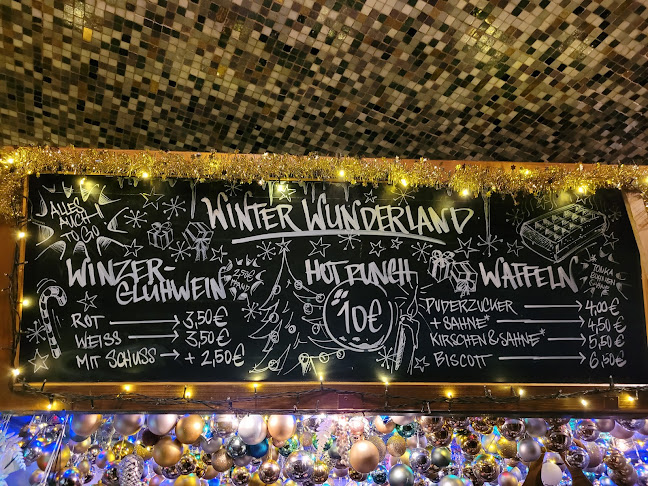 ALLES
AUCH
TO GO
WINTER WUNDERLAND
WINZER-
GLÜHWEIN
2,50€
PFAND
ROT → 3,50€
WEISS → 3,50€
MIT SCHUSS → + 2,50€
HOT PUNCH
10€
WAFFELN
*TONKA
BOHNEN
SAHNE
PUDERZUCKER → 4,00€
+ SAHNE* → 4,50€
KIRSCHEN & SAHNE* → 5,50€
BISCOTT → 6,50€